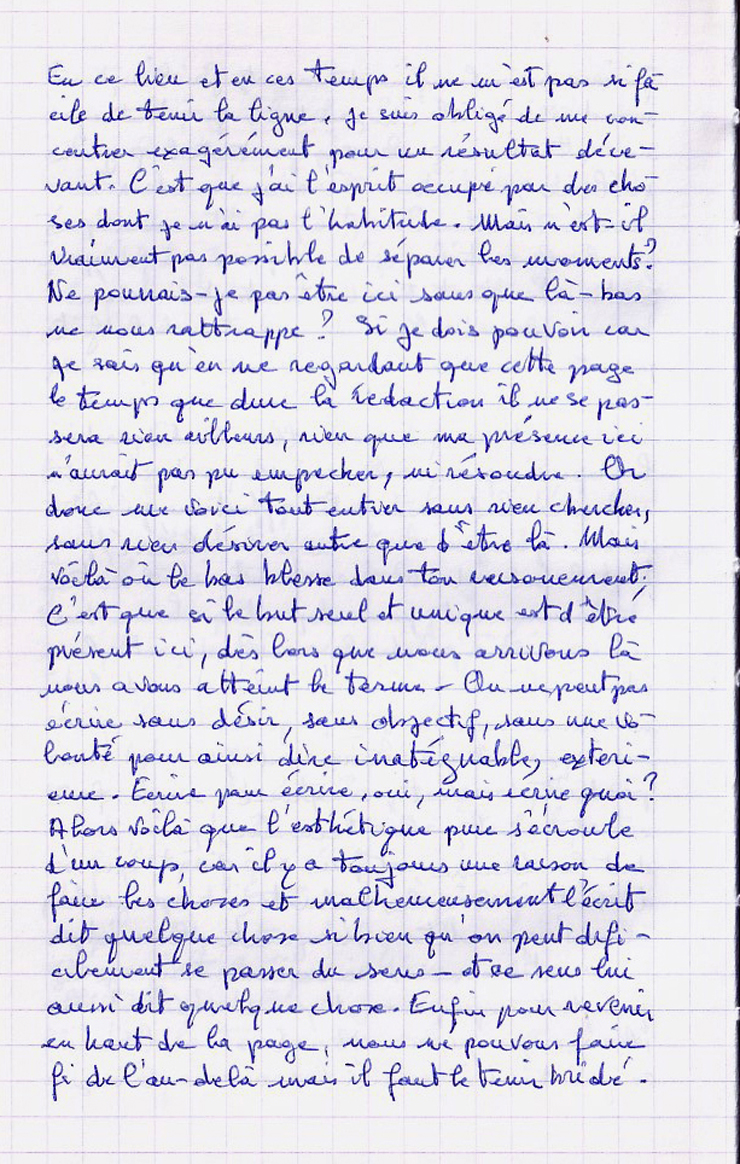 En ce lieu et en ces temps il ne m'est pas si fa
cile de tenir la ligne, je suis obligé de me con-
centrer exagérément pour un résultat déce-
vant. C'est que j'ai l'esprit occupé par des cho
ses dont je n'ai pas l'habitude. Mais n'est-il
vraiment pas possible de séparer les moments?
Ne pourrais-je pas être ici sans que là-bas
ne nous rattrappe? Si je dois pouvoir car
je sais qu'en ne regardant que cette page
le temps que dure la rédaction il ne se pas-
sera rien ailleurs, rien que ma présence ici
n'aurait pas pu empecher, ni résoudre. Or
donc me voici tout entier sans rien chercher,
sans rien désirer autre que d'être là. Mais
voilà où le bas blesse dans ton raisonnement;
C'est que si le but seul et unique est d'être
présent ici, dès lors que nous arrivons là
nous avons atteint le terme - On ne peut pas
écrire sans désir, sans objectif, sans une vo-
lonté pour ainsi dire inatégnable, exteri-
eure. Ecrire pour écrire, oui, mais écrire quoi?
Alors voilà que l'esthétique pure s'écroule
d'un coup, car il y a toujours une raison de
faire les choses et malheureusement l'écrit
dit quelque chose si bien qu'on peut difi-
cilement se passer du sens - et ce sens lui
aussi dit quelque chose. Enfin pour revenir
en haut de la page, nous ne pouvons faire
fi de l'au-delà mais il faut le tenir bridé.